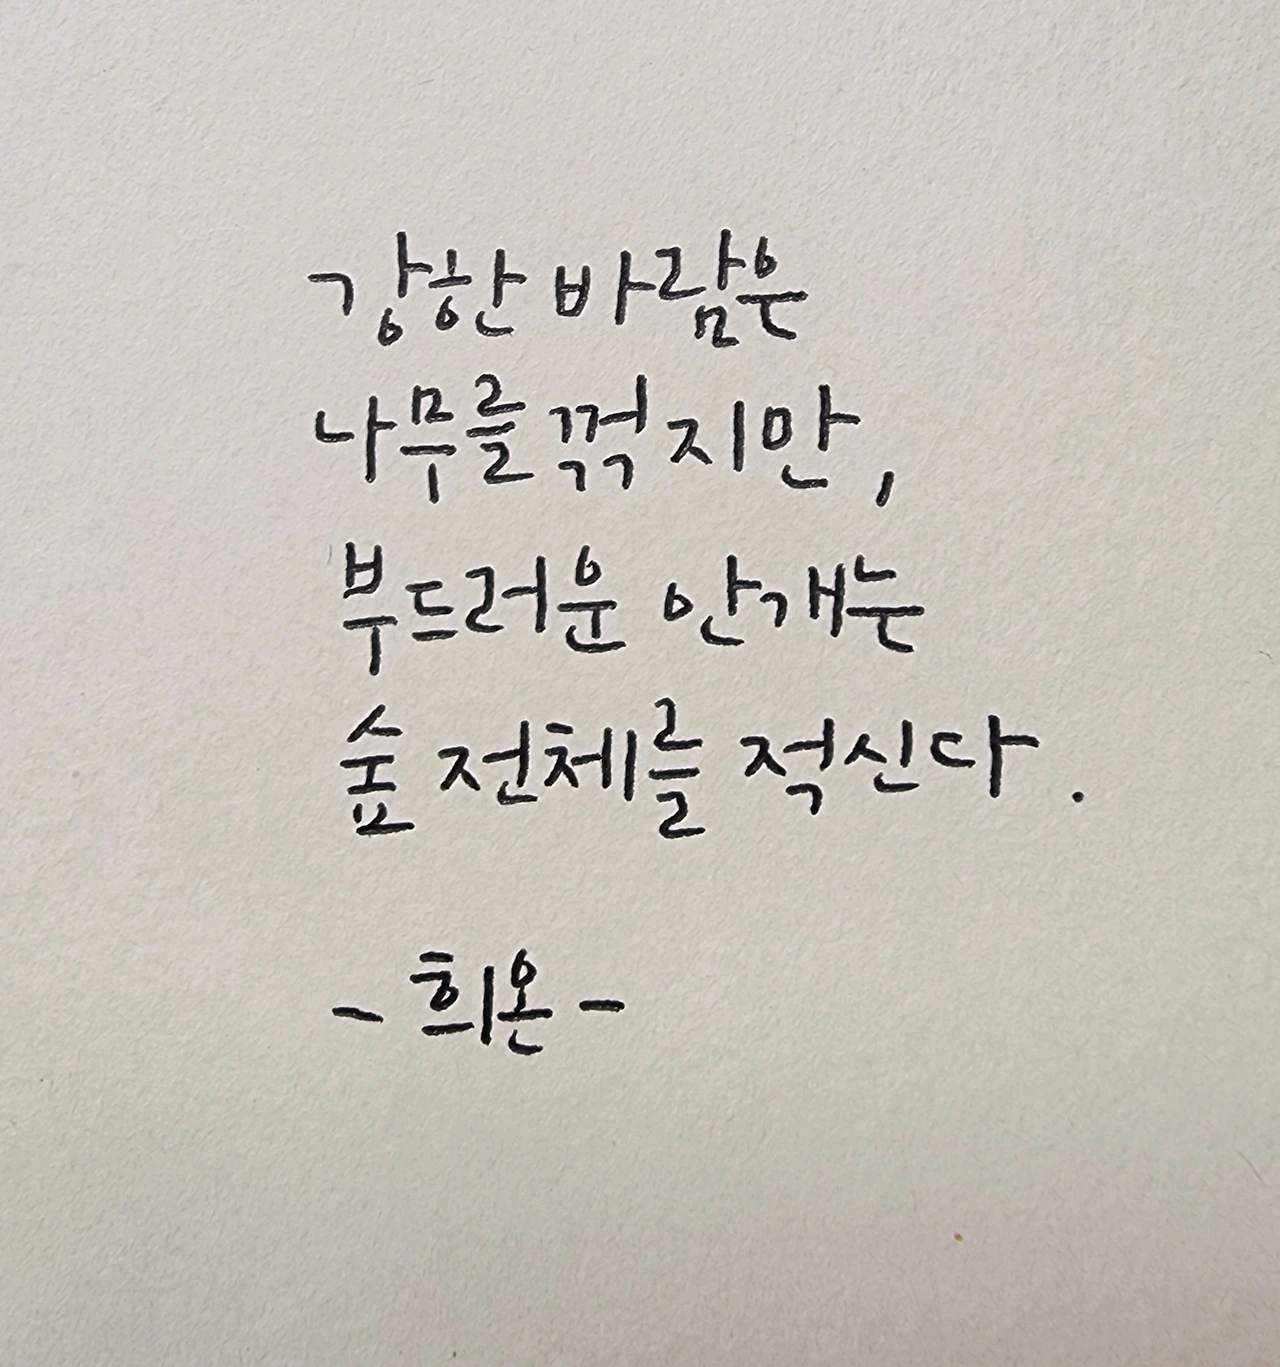 강한 바람은
나무를 꺾지만,
부드러운 안개는
숲 전체를 적신다.
- 희온 -